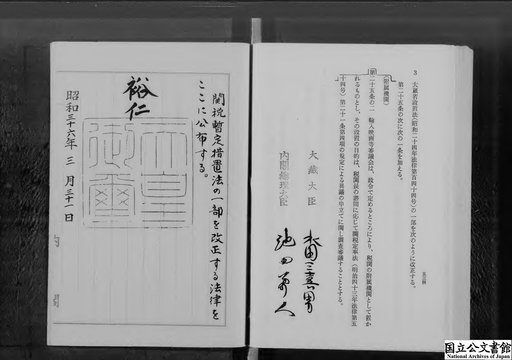 3 大蔵省設置法(昭和二十四年法律第百四十四号)の一部を次のように改正する。
第二十五条の次に次の一条を加える。
(附属機関)
第二十五条の二 輸入映画等審議会は、政令で定めるところにより、税関の附属機関として置か
れるものとし、その設置の目的は、税関長の諮問に応じて関税定率法(明治四十三年法律第五
十四号)第二十一条第四項の規定による異議の申立てに関し調査審議することとする。
大蔵大臣 水田三喜男
内閣総理大臣 池田勇人
関税暫定措置法の一部を改正する法律を
ここに公布する。
裕仁
天皇御璽
昭和三十六年三月三十一日
国立公文書館
National Archives of Japan